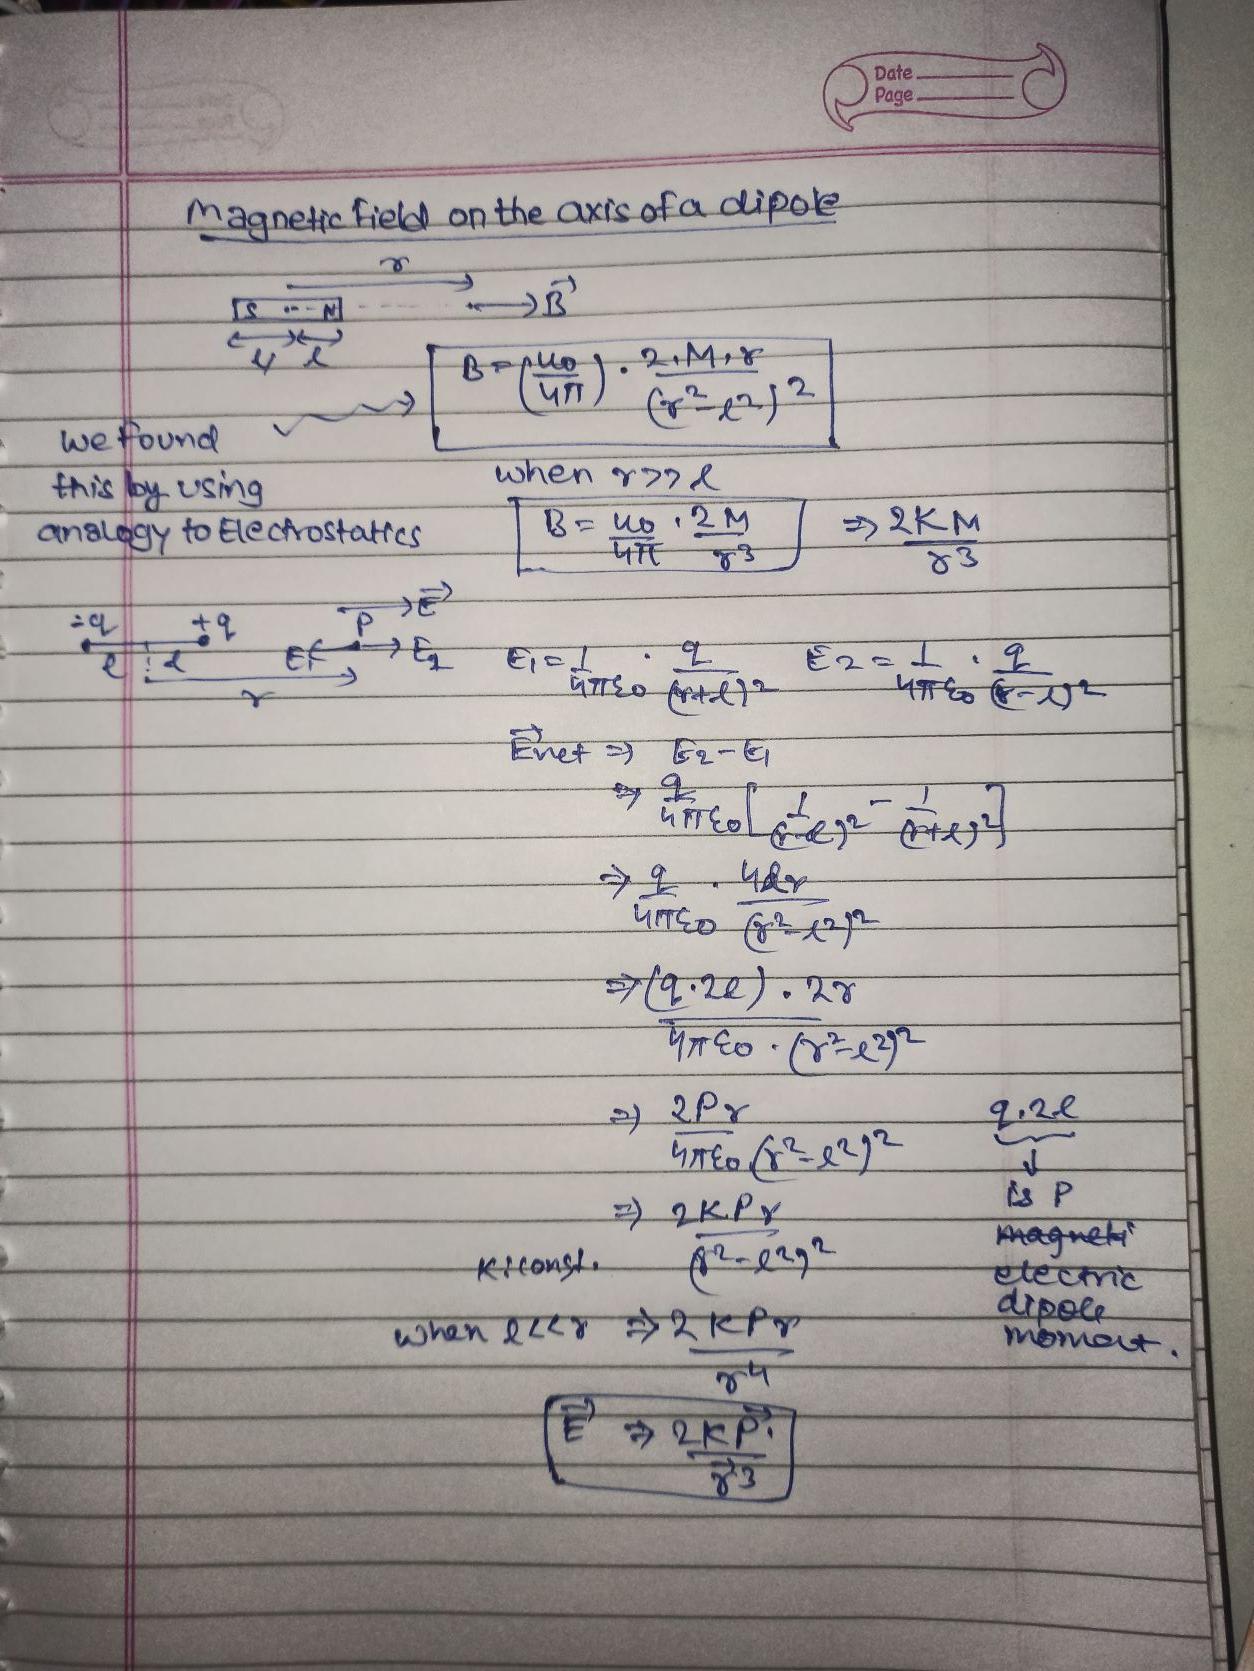 Date
Page
Magnetic field on the axis of a dipole
r
S N → B⃗
l l
B = (μ0/4π) · 2.M.r/(r²-l²)²
we found
this by using
analogy to Electrostatics
when r>>l
B = μ0/4π · 2M/r³ ⇒ 2KM/r³
-q +q P → E⃗
l l E1 E2
r
E1 = 1/4πε0 · q/(r+l)² E2 = 1/4πε0 · q/(r-l)²
E⃗net ⇒ E2-E1
⇒ q/4πε0 [1/(r-l)² - 1/(r+l)²]
⇒ q/4πε0 · 4lr/(r²-l²)²
⇒ (q.2l).2r/4πε0.(r²-l²)²
⇒ 2Pr/4πε0(r²-l²)²
q.2l
↓
is P
magneti
electric
dipole
moment.
⇒ 2KPr/(r²-l²)²
K:const.
when l<<r ⇒ 2KPr/r⁴
E⃗ ⇒ 2KP⃗./r⃗³